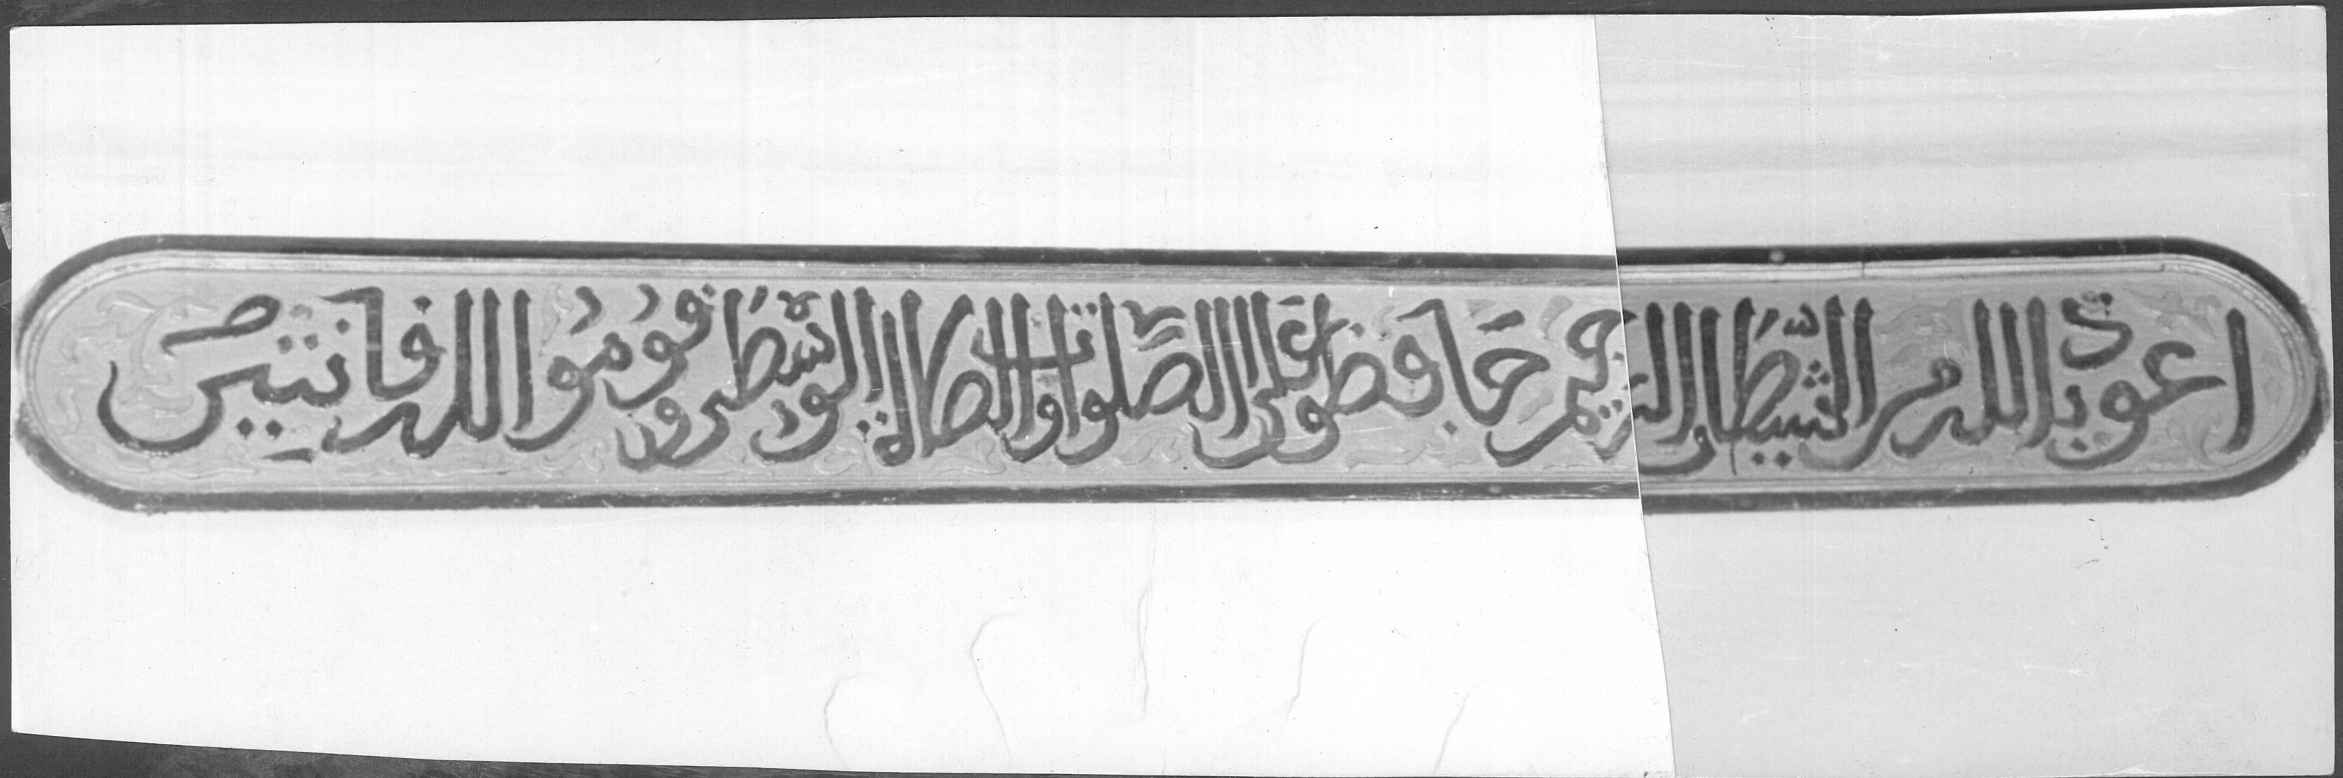 اعوذ بالله من الشيطان الرجيم حافظوا على الصلوات والصلاة الوسطى وقوموا لله قانتين